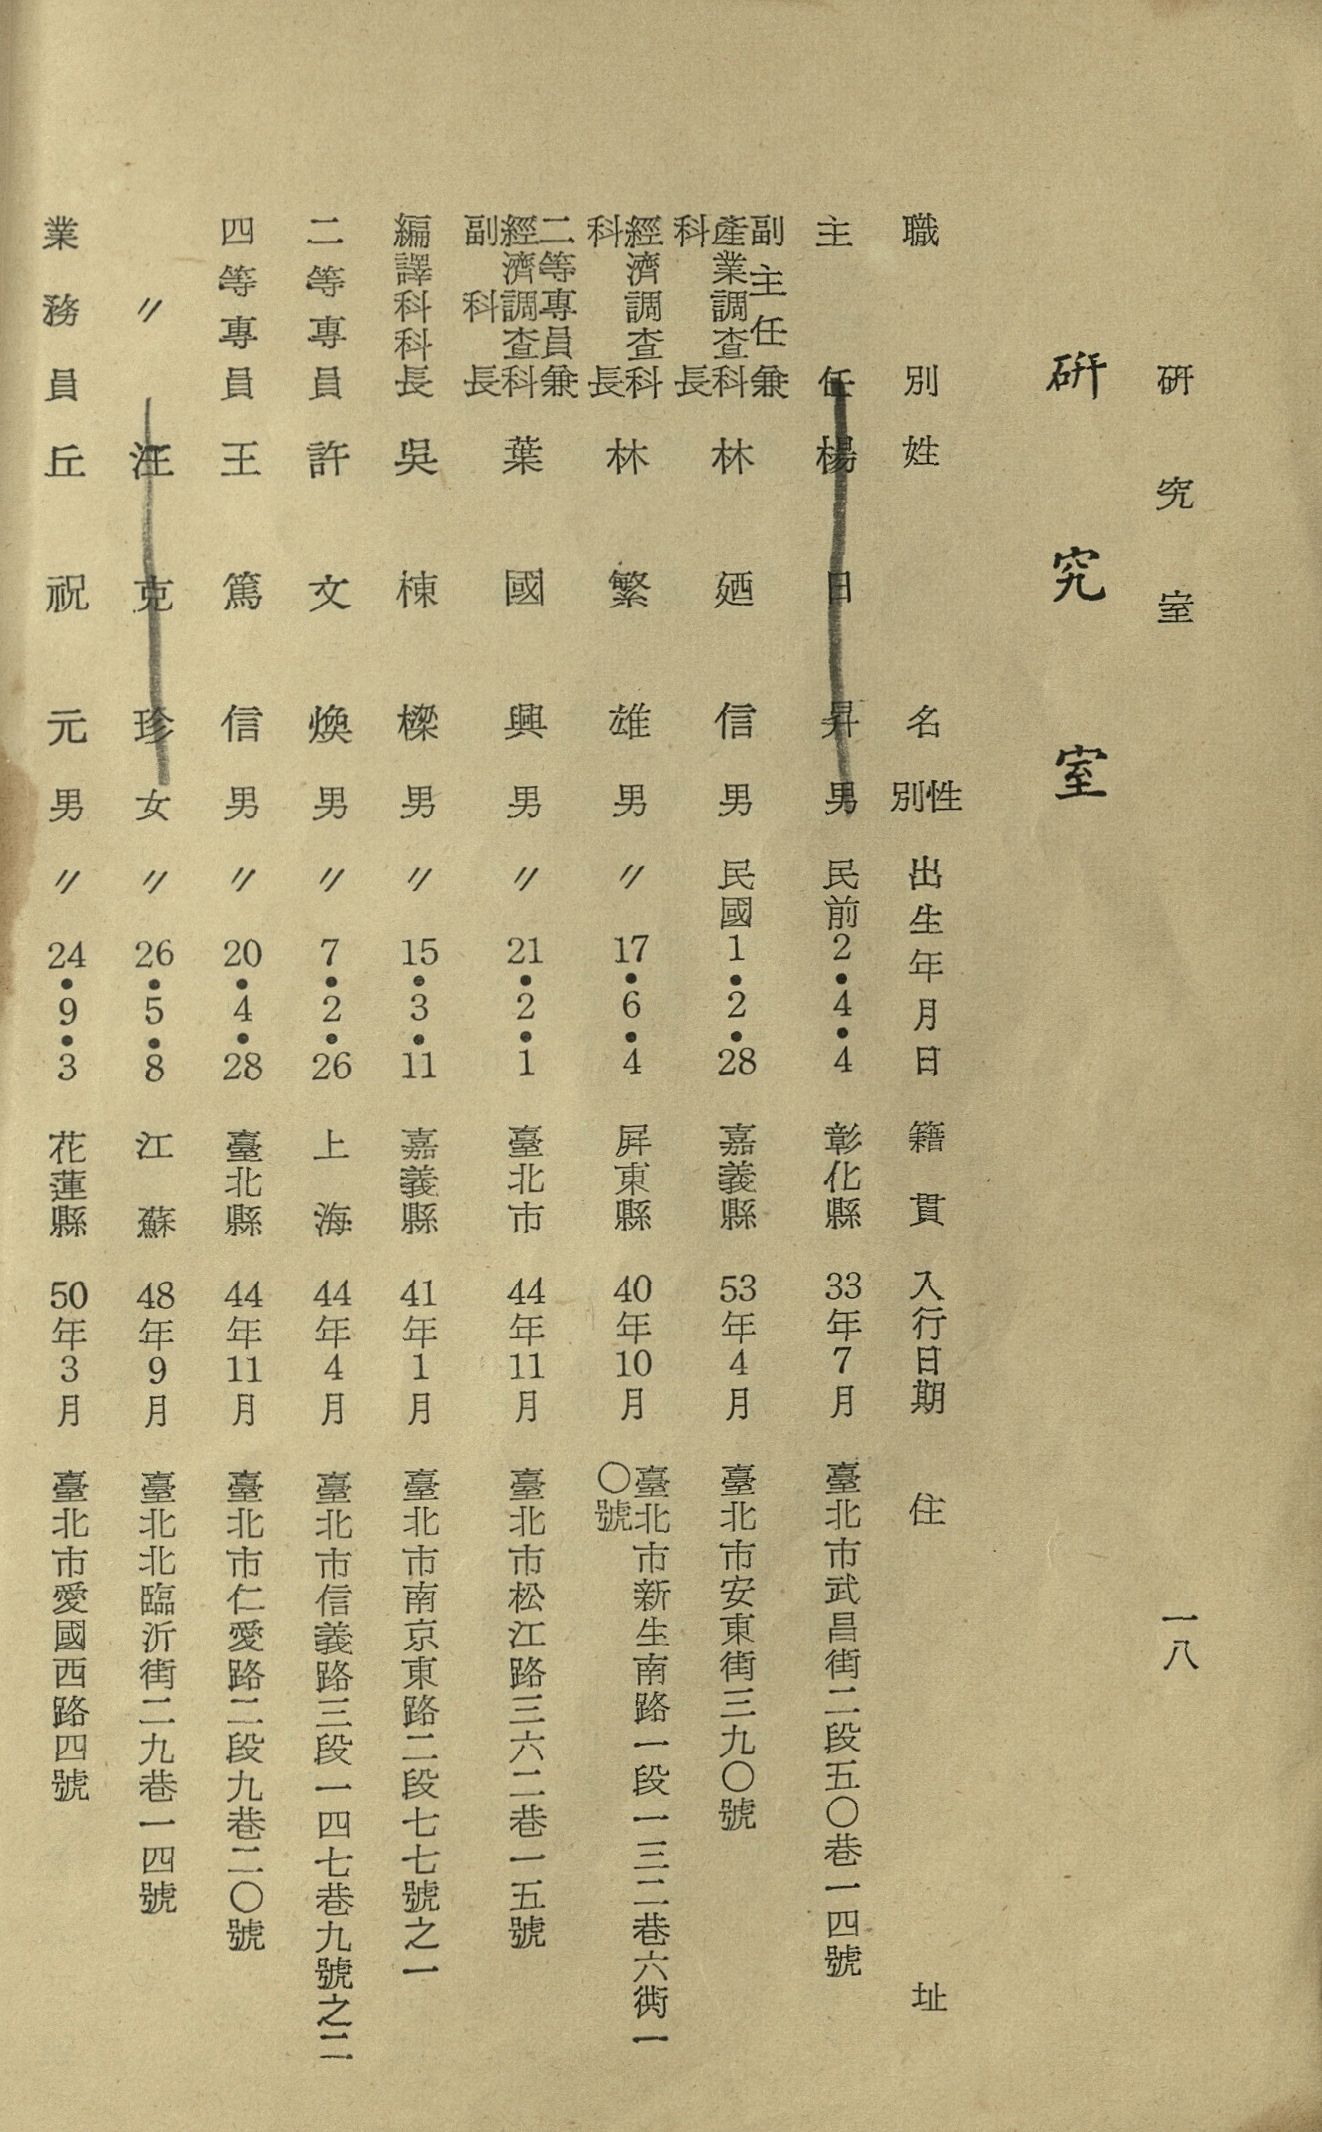 研究室
一八
研究室
職別 姓名 性別 出生年月日 籍貫 入行日期 住址
主任 楊日昇 男 民前2•4•4 彰化縣 33年7月 臺北市武昌街二段五〇巷一四號
副主任兼產業調查科科長 林廼信 男 民國1•2•28 嘉義縣 53年4月 臺北市安東街三九〇號
經濟調查科科長 林繁雄 男 〃17•6•4 屏東縣 40年10月 臺北市新生南路一段一三二巷六衖一〇號
二等專員兼經濟調查科副科長 葉國興 男 〃21•2•1 臺北市 44年11月 臺北市松江路三六二巷一五號
編譯科科長 吳棟樑 男 〃15•3•11 嘉義縣 41年1月 臺北市南京東路二段七七號之一
二等專員 許文煥 男 〃7•2•26 上海 44年4月 臺北市信義路三段一四七巷九號之二
四等專員 王篤信 男 〃20•4•28 臺北縣 44年11月 臺北市仁愛路二段九巷二〇號
〃 汪克珍 女 〃26•5•8 江蘇 48年9月 臺北北臨沂街二九巷一四號
業務員 丘祝元 男 〃24•9•3 花蓮縣 50年3月 臺北市愛國西路四號